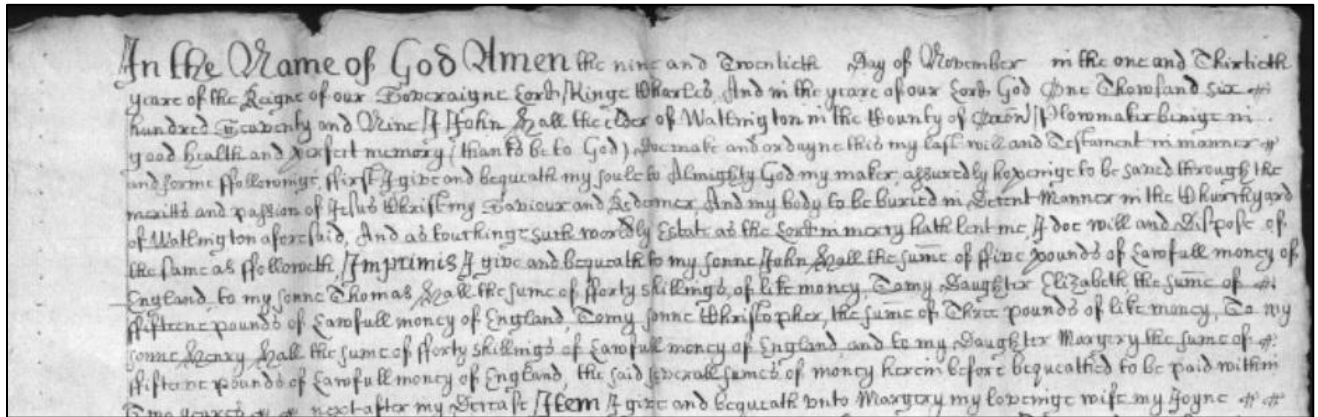 In the Name of God Amen the nine and Twentieth Day of November in the one and Thirtieth
yeare of the Reigne of our Soveraigne Lord Kinge Charles, And in the yeare of our Lord God One Thowsand six
hundred Seaventy and Nine I John Hall the elder of Watlington in the County of Oxōn Plowmaker beinge in
good health and perfect memory (thanks be to God) doe make and ordayne this my last will and Testament in manner
and forme ffollowinge, ffirst I give and bequeath my soule to Almighty God my maker, assuredly hopeinge to be saved through the
meritts and passion of Jesus Christ my Saviour and Redemer, And my body to be buried in Decent Manner in the Churchyard
of Watlington aforesaid, And as touchinge such worldly Estate as the Lord in mercy hath lent me, I doe will and Dispose of
the same as ffolloweth, Imprimis I give and bequeath to my sonne John Hall the sume of ffive pounds of Lawfull money of
England, to my sonne Thomas Hall the sume of fforty shillings, of like money, To my Daughter Elizabeth the sume of
ffifteene pounds of Lawfull money of England, To my sonne Christopher, the sume of Three pounds of like money, To my
sonne Henry Hall the sume of fforty shillings of Lawfull money of England, and to my Daughter Margery the sume of
ffifteene pounds of Lawfull money of England, the said severall sumes of money herein before bequeathed to be paid within
Two yeares next after my Decease Item I give and bequeath unto Margery my loveinge wife my Joyne